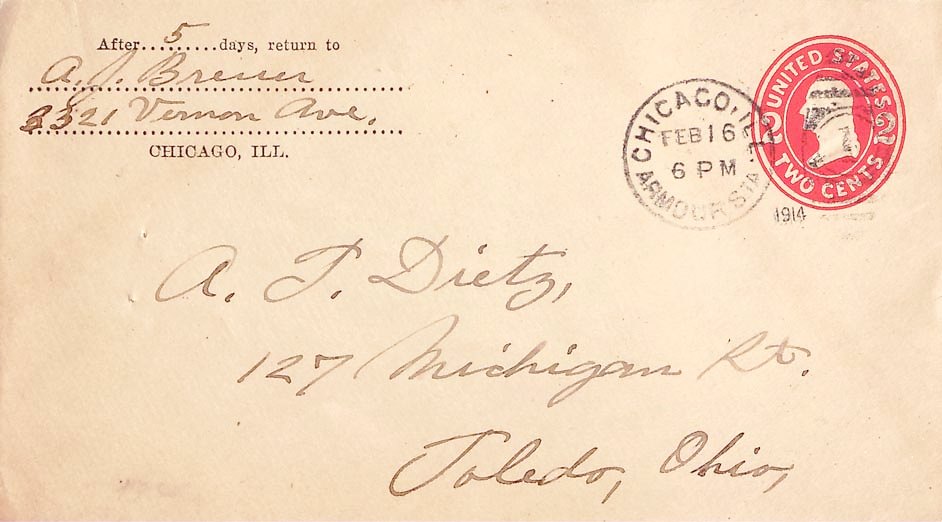 After.....5.......days, return to
A. J. Breuer
3321 Vernon Ave.
CHICAGO, ILL.
CHICAGO, ILL.
FEB 16
6 PM
ARMOUR STA.
1914
UNITED STATES
2 2
TWO CENTS
A. T. Dietz,
127 Michigan St.
Toledo, Ohio,